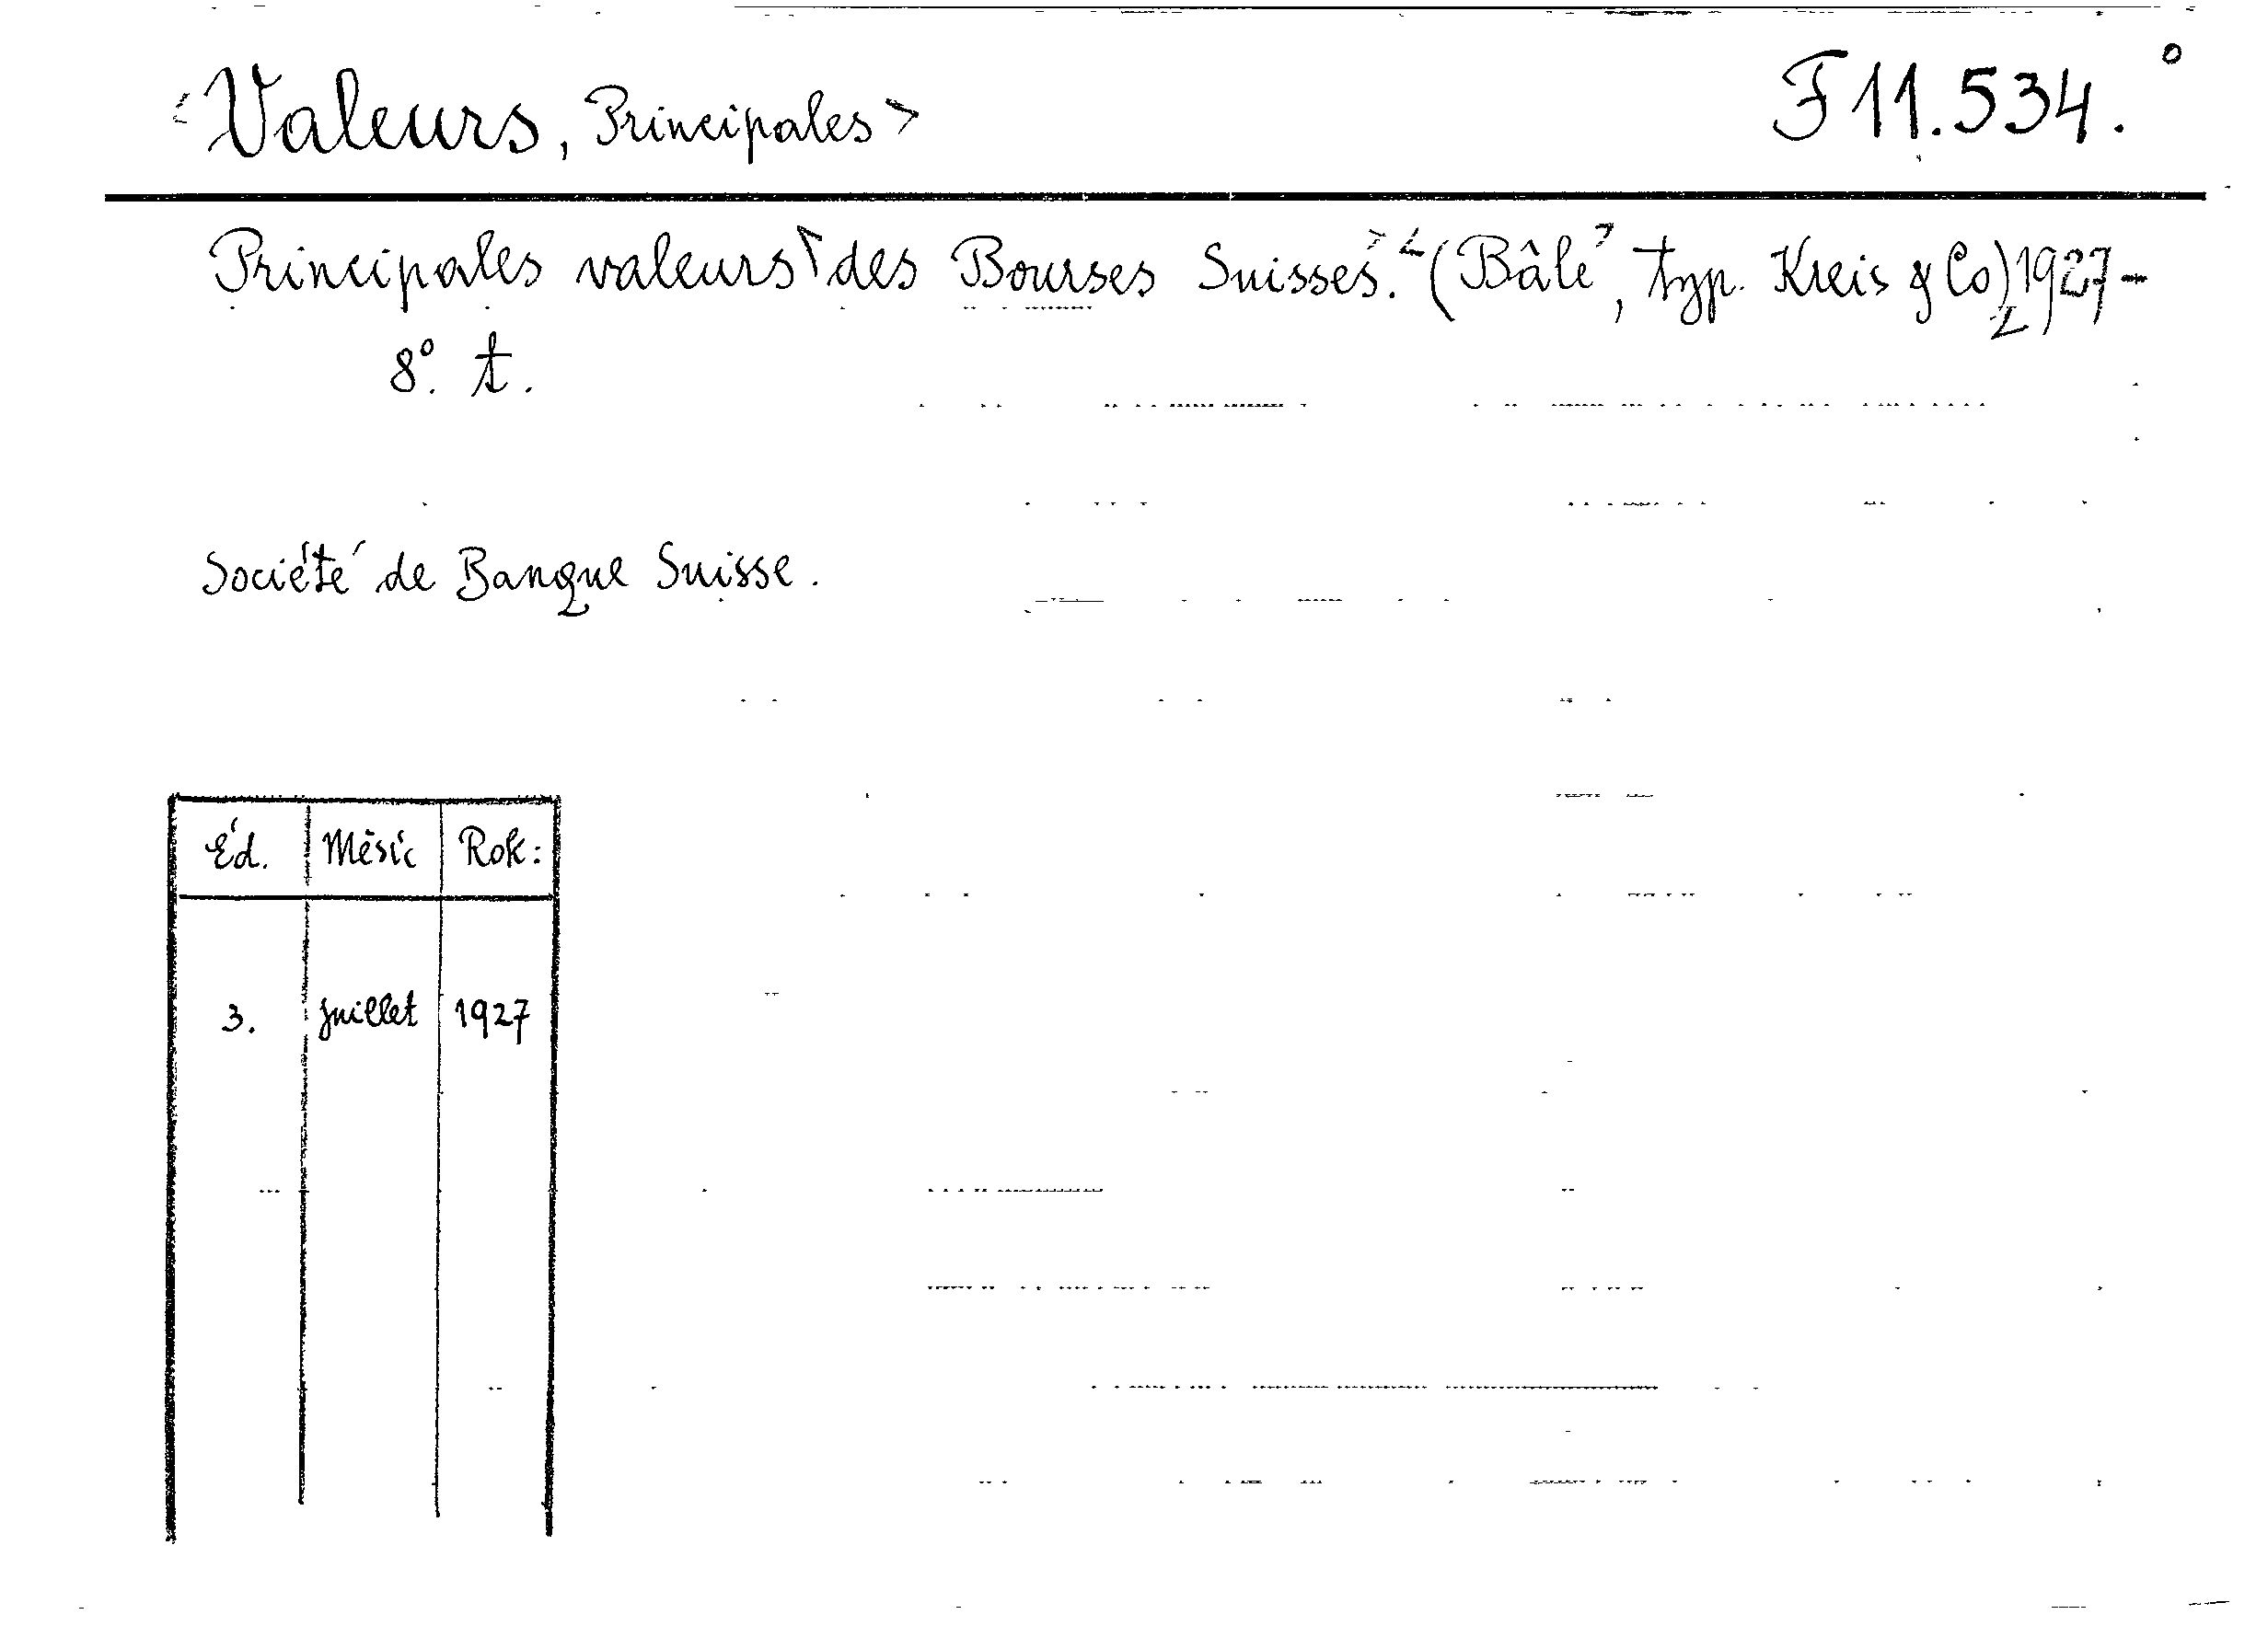 <Valeurs, Principales> F 11.534.°
Principales valeurs des Bourses Suisses. (Bâle, typ. Kreis & Co) 1927-
8°. t.
Société de Banque Suisse.
Éd. Měsíc Rok:
3. juillet 1927